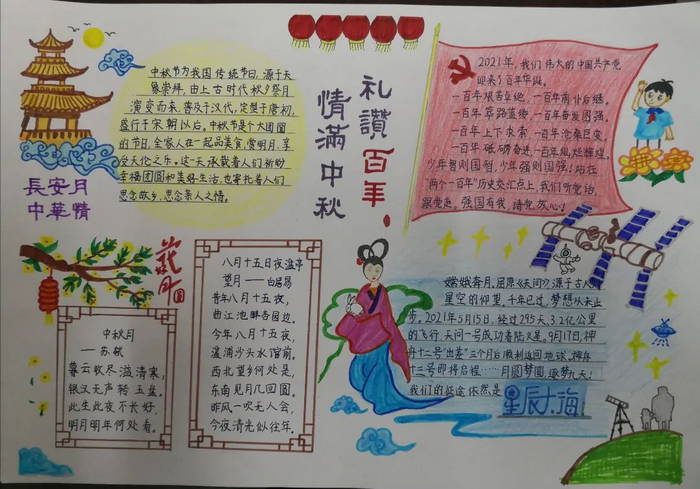 礼讚百年
情滿中秋
中秋节为我国传统节日,源于天
象崇拜,由上古时代秋夕祭月
演变而来,普及于汉代,定型于唐初,
盛行于宋朝以后。中秋节是个大团圆
的节日,全家人在一起品美食,赏明月,享
受天伦之乐。这一天承载着人们祈盼
幸福团圆和美好生活,也寄托着人们
思念故乡,思念亲人之情。
長安月
中華情
2021年,我们伟大的中国共产党
迎来了百年华诞。
一百年艰苦卓绝,一百年前仆后继。
一百年筚路蓝缕,一百年奋发图强。
一百年上下求索,一百年沧桑巨变。
一百年砥砺奋进,一百年灿烂辉煌。
少年智则国智,少年强则国强!站在
"两个一百年"历史交汇点上,我们听党话,
跟党走。强国有我,请党放心!
花月圆
中秋月
——苏轼
暮云收尽溢清寒,
银汉无声转玉盘。
此生此夜不长好,
明月明年何处看。
八月十五日夜湓亭
望月——白居易
昔年八月十五夜,
曲江池畔杏园边。
今年八月十五夜,
湓浦沙头水馆前。
西北望乡何处是,
东南见月几回圆。
昨风一吹无人会,
今夜清光似往年。
嫦娥奔月,屈原《天问》,源于古人
星空的仰望,千年已过,梦想从未止
步。2021年5月15日,经过295天、3.2亿公里
的飞行,天问一号成功着陆火星。9月17日,神
舟十二号"出差"三个月后顺利返回地球。神舟
十三号即将启程……月圆梦圆,逐梦九天!
我们的征途依然是星辰大海